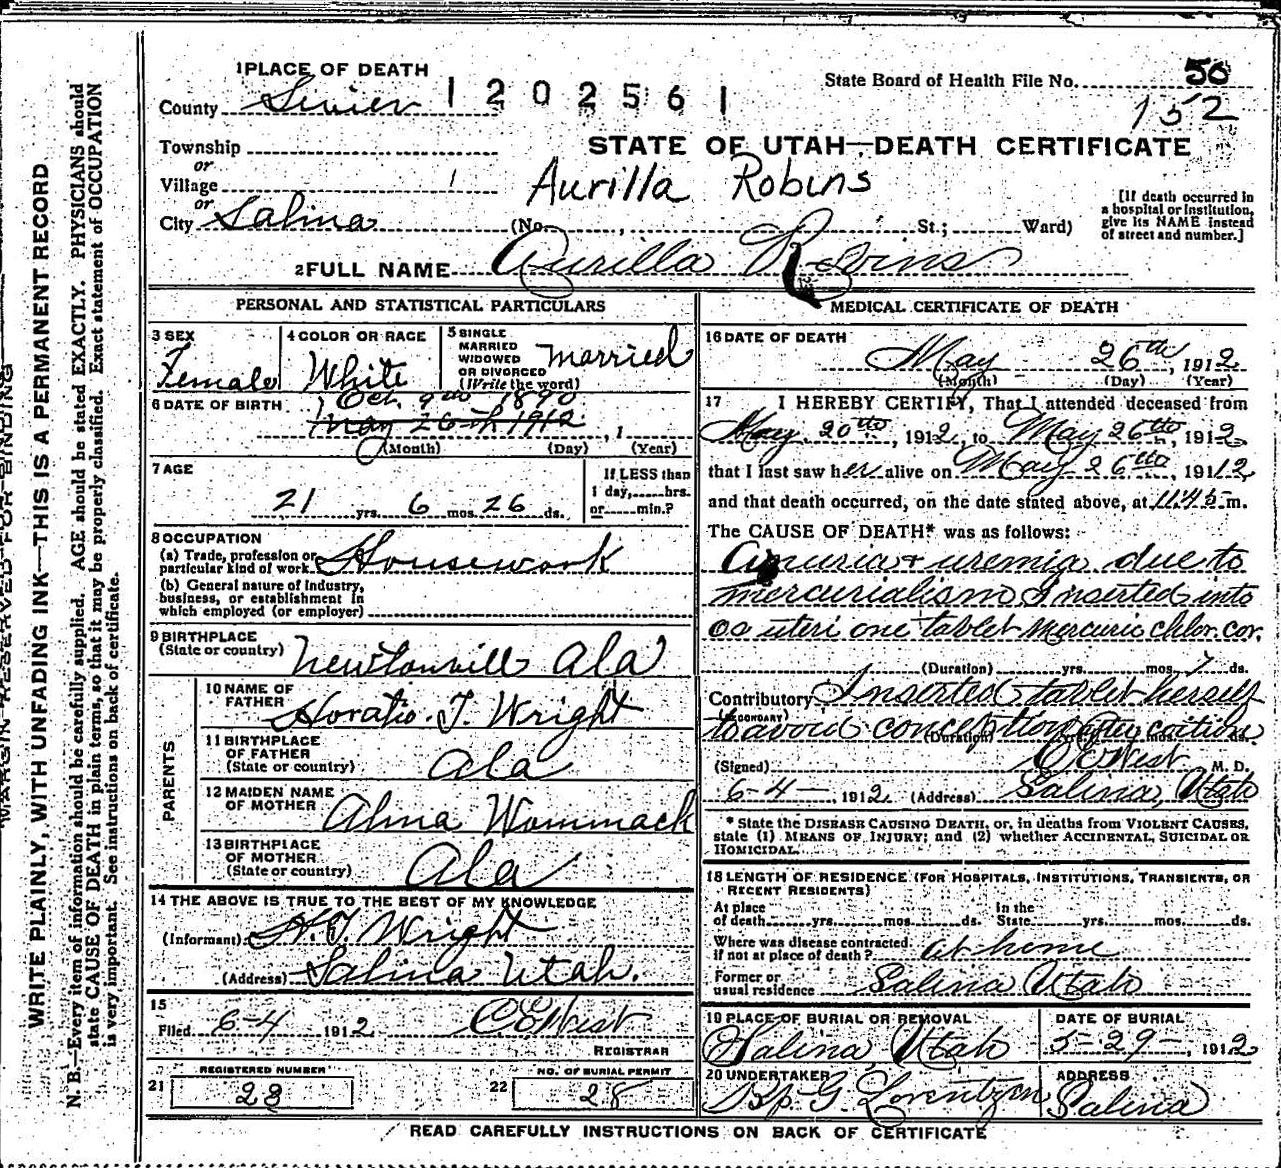 1 PLACE OF DEATH
State Board of Health File No. 50
County Sevier 1202561
152
Township
STATE OF UTAH—DEATH CERTIFICATE
or
Village
Aurilla Robins
or
City Salina (No. , St.; Ward)
[If death occurred in
a hospital or institution,
give its NAME instead
of street and number.]
2 FULL NAME Aurilla Robins
PERSONAL AND STATISTICAL PARTICULARS
3 SEX
Female
4 COLOR OR RACE
White
5 SINGLE
MARRIED
WIDOWED
OR DIVORCED
(Write the word)
married
6 DATE OF BIRTH
Oct. 9th 1890
May 26th 1912, 1
(Month) (Day) (Year)
7 AGE
21 yrs. 6 mos. 26 ds.
If LESS than
1 day,......hrs.
or......min.?
8 OCCUPATION
(a) Trade, profession or
particular kind of work Housework
(b) General nature of industry,
business, or establishment in
which employed (or employer)
9 BIRTHPLACE
(State or country) Newtonvill Ala
PARENTS
10 NAME OF
FATHER Horatio. T. Wright
11 BIRTHPLACE
OF FATHER
(State or country) Ala
12 MAIDEN NAME
OF MOTHER Alma Wommack
13 BIRTHPLACE
OF MOTHER
(State or country) Ala
14 THE ABOVE IS TRUE TO THE BEST OF MY KNOWLEDGE
(Informant) H.T. Wright
(Address) Salina Utah.
15
Filed 6-4 1912 C E West
REGISTRAR
REGISTERED NUMBER
21 28
NO. OF BURIAL PERMIT
22 28
MEDICAL CERTIFICATE OF DEATH
16 DATE OF DEATH
May 26th, 1912
(Month) (Day) (Year)
17 I HEREBY CERTIFY, That I attended deceased from
May 20th, 1912, to May 26th, 1912.
that I last saw her alive on May 26th, 1912
and that death occurred, on the date stated above, at 11.45 m.
The CAUSE OF DEATH* was as follows:
Anuria + uremia due to
mercurialism Inserted into
os uteri one tablet Mercuric chlor. cor.
(Duration) yrs. mos. 7 ds.
Contributory Inserted tablet herself
(SECONDARY)
to avoid conception
(Duration) yrs. mos. ds.
(Signed) C E West M. D.
6-4-, 1912 (Address) Salina, Utah
* State the DISEASE CAUSING DEATH, or, in deaths from VIOLENT CAUSES,
state (1) MEANS OF INJURY; and (2) whether ACCIDENTAL, SUICIDAL OR
HOMICIDAL.
18 LENGTH OF RESIDENCE (FOR HOSPITALS, INSTITUTIONS, TRANSIENTS, OR
RECENT RESIDENTS)
At place
of death......yrs.......mos.......ds.
In the
State......yrs.......mos.......ds.
Where was disease contracted
if not at place of death? at home
Former or
usual residence Salina Utah
19 PLACE OF BURIAL OR REMOVAL
Salina Utah
DATE OF BURIAL
5-29-, 1912
20 UNDERTAKER
G. Lorentzen
ADDRESS
Salina
READ CAREFULLY INSTRUCTIONS ON BACK OF CERTIFICATE
MARGIN RESERVED FOR BINDING
WRITE PLAINLY, WITH UNFADING INK—THIS IS A PERMANENT RECORD
N. B.—Every item of information should be carefully supplied. AGE should be stated EXACTLY. PHYSICIANS should
state CAUSE OF DEATH in plain terms, so that it may be properly classified. Exact statement of OCCUPATION
is very important. See instructions on back of certificate.